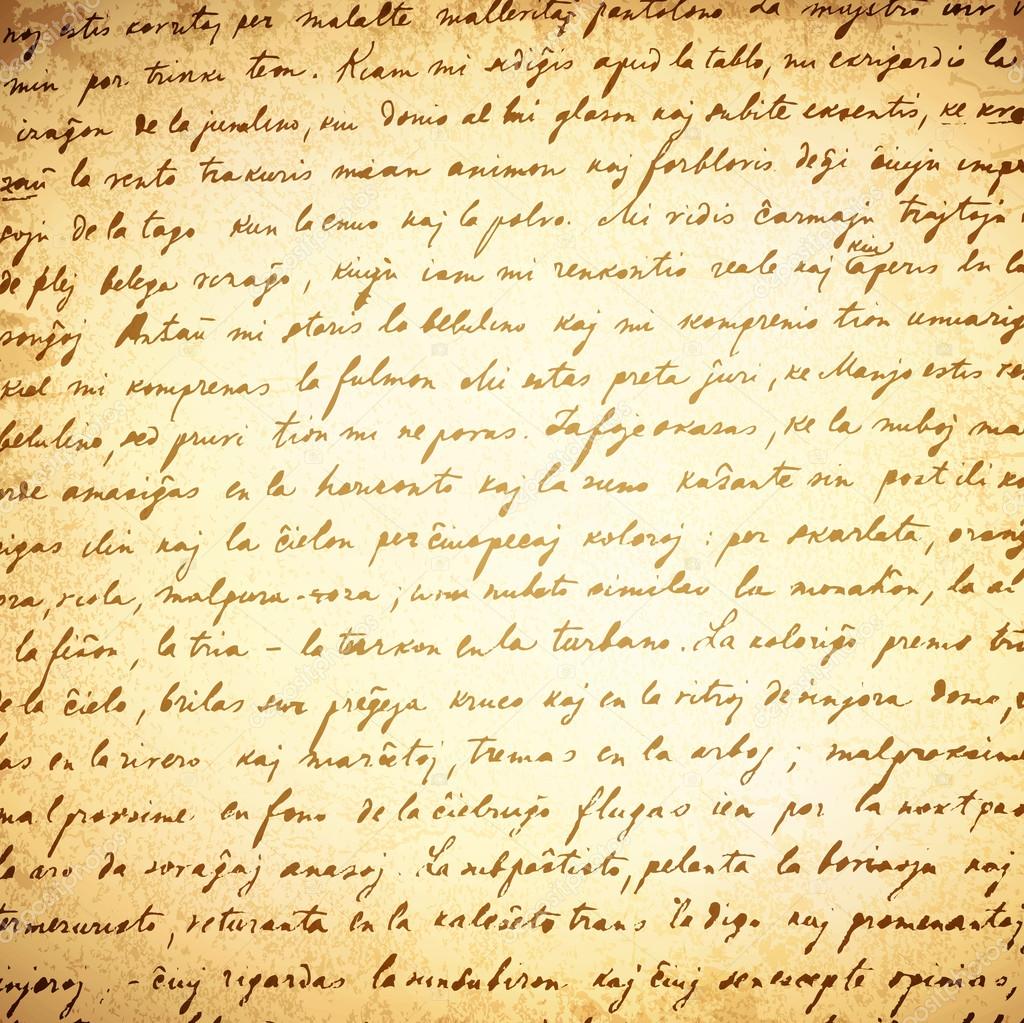 noj estis kovritaj per malalte pantolono da
min por trinki teon. Kiam mi sidiĝis apud la tablo, mi ekrigardis la
izaĝon de la junulino, kiu donis al mi glason kaj subite eksentis, ke kva
zaŭ la vento trakuris mian animon kaj forbloris deĝi ĉiujn impr
sojn de la tago kun la enuo kaj la polvo. Mi vidis ĉarmajn trajtojn
de plej belega vizaĝo, kiujn iam mi renkontis reale kaj kiu aperis en la
sonĝoj Antaŭ mi staris la belulino kaj mi komprenis tion unuarig
kiel mi komprenas la fulmon Mi estas preta ĵuri, ke Manjo estis
belulino, sed pruvi tion mi ne povas. Iafoje okazas, ke la nuboj ma
orde amasiĝas en la horizonto kaj la suno kaŝante sin post ili ko
rigas ilin kaj la ĉielon per ĉiuspecaj koloroj : per skarlata, oranĝ
ora, viola, malpura-roza ; unu nubeto similas la monaĥon, la al
la fiŝon, la tria - la turkon en la turbano. La koloriĝo premis tri
de la ĉielo, brilas sur preĝeja kruco kaj en la vitroj de sinjora domo,
las en la rivero kaj marĉetoj, tremas en la arboj ; malproksime
malproksime en fono de la ĉielruĝo flugas ien por la noktpas
la aro da sovaĝaj anasoj. La subpaŝtisto, pelanta la bovinojn kaj
termezuristo, veturanta en la kaleŝeto trans la digo kaj promenantaj
injoroj, - ĉiuj rigardas la sunsubiron kaj ĉiuj senescepte opinias,